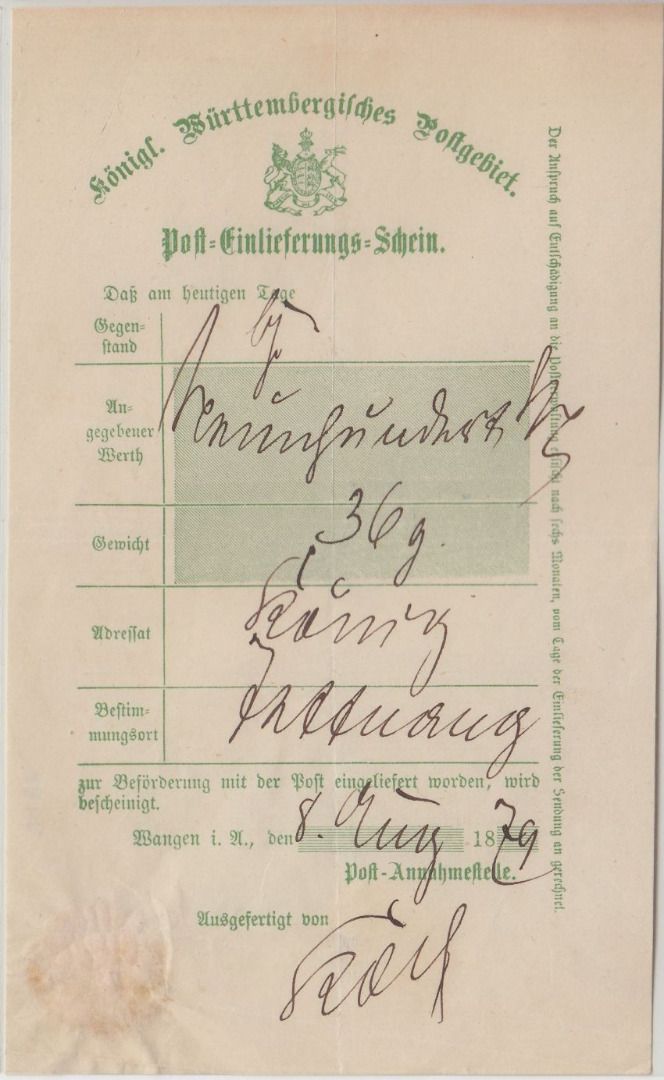 Königl. Württembergisches Postgebiet.
Post-Einlieferungs-Schein.
Daß am heutigen Tage
Gegen-
stand
An-
gegebener
Werth
Neunhundert
Gewicht
36 g.
Adressat
König
Bestim-
mungsort
Tettnang
zur Beförderung mit der Post eingeliefert worden, wird
bescheinigt.
Wangen i. A., den 8. Aug 1879
Post-Annahmestelle.
Ausgefertigt von
Der Anspruch auf Entschädigung an die Postverwaltung erlischt nach sechs Monaten, vom Tage der Einlieferung der Sendung an gerechnet.